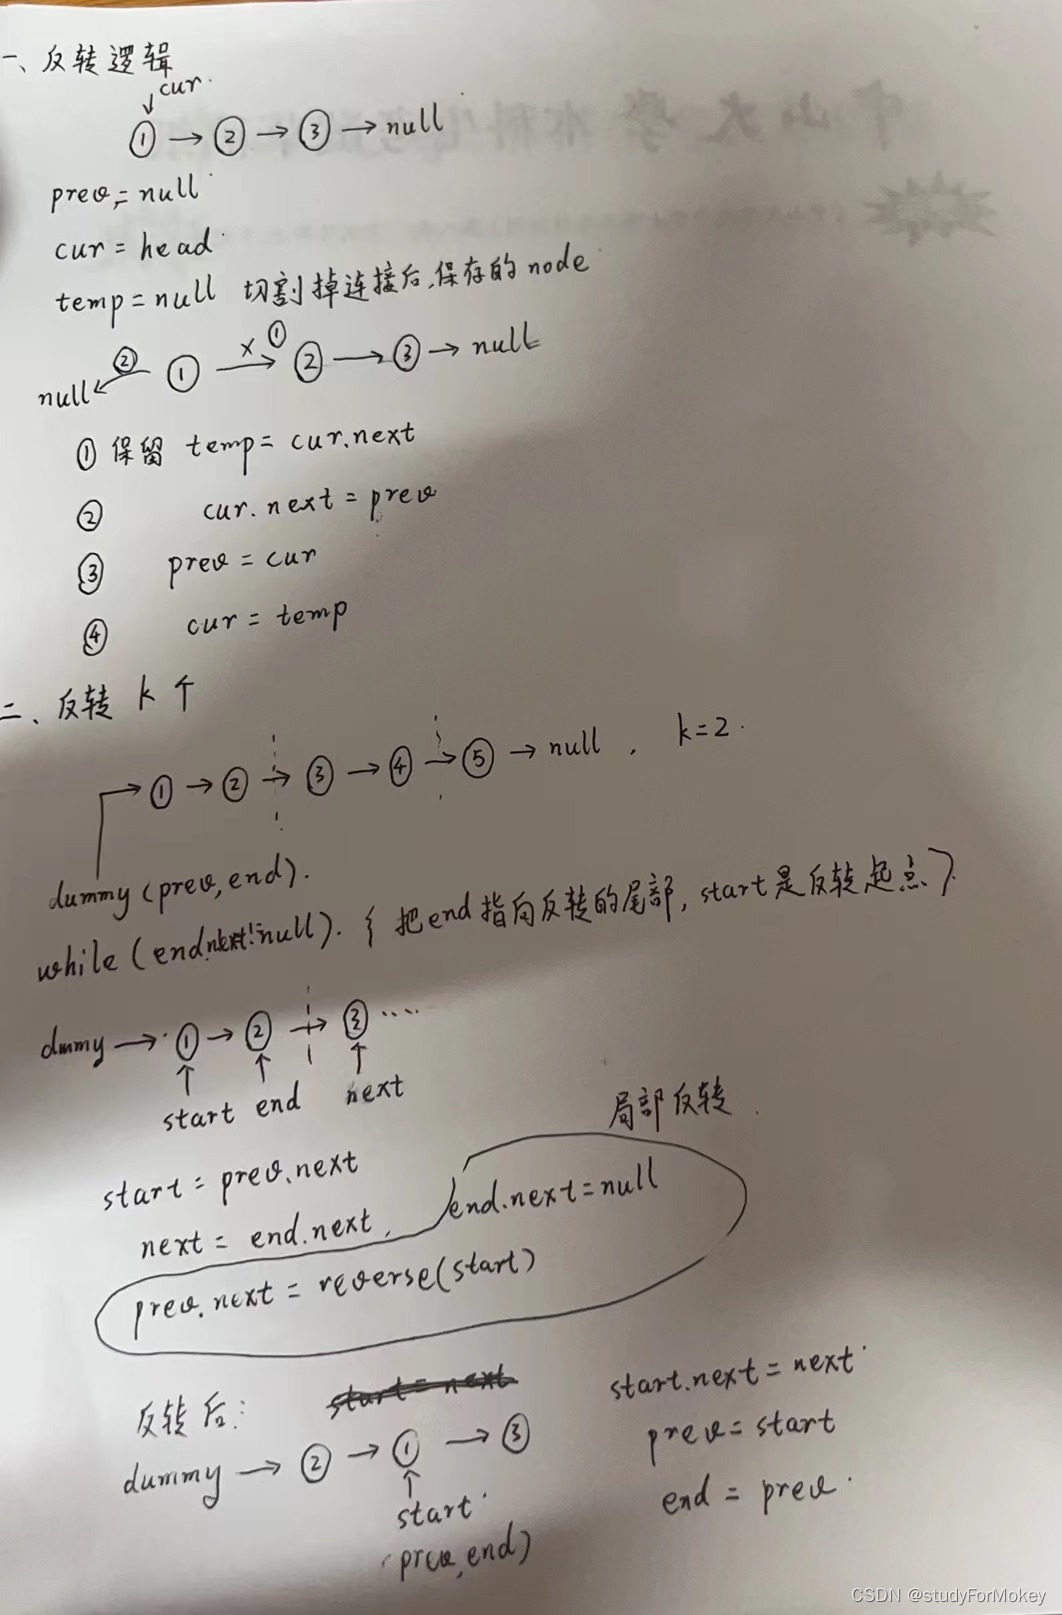 一、反转逻辑
cur
① → ② → ③ → null
prev = null
cur = head
temp = null 切割掉连接后,保存的node
② × ①
null ← ① → ② → ③ → null
① 保留 temp = cur.next
② cur.next = prev
③ prev = cur
④ cur = temp
二、反转 k 个
→ ① → ② → ③ → ④ → ⑤ → null , k=2
dummy (prev, end).
while (end.next!=null). { 把end指向反转的尾部, start是反转起点 }
dmmy → ① → ② → ③ ....
start end next
局部反转
start = prev.next
next = end.next, end.next = null
prev.next = reverse(start)
反转后: start = next start.next = next
dummy → ② → ① → ③ prev = start
start end = prev
(prev, end)
CSDN @studyForMokey